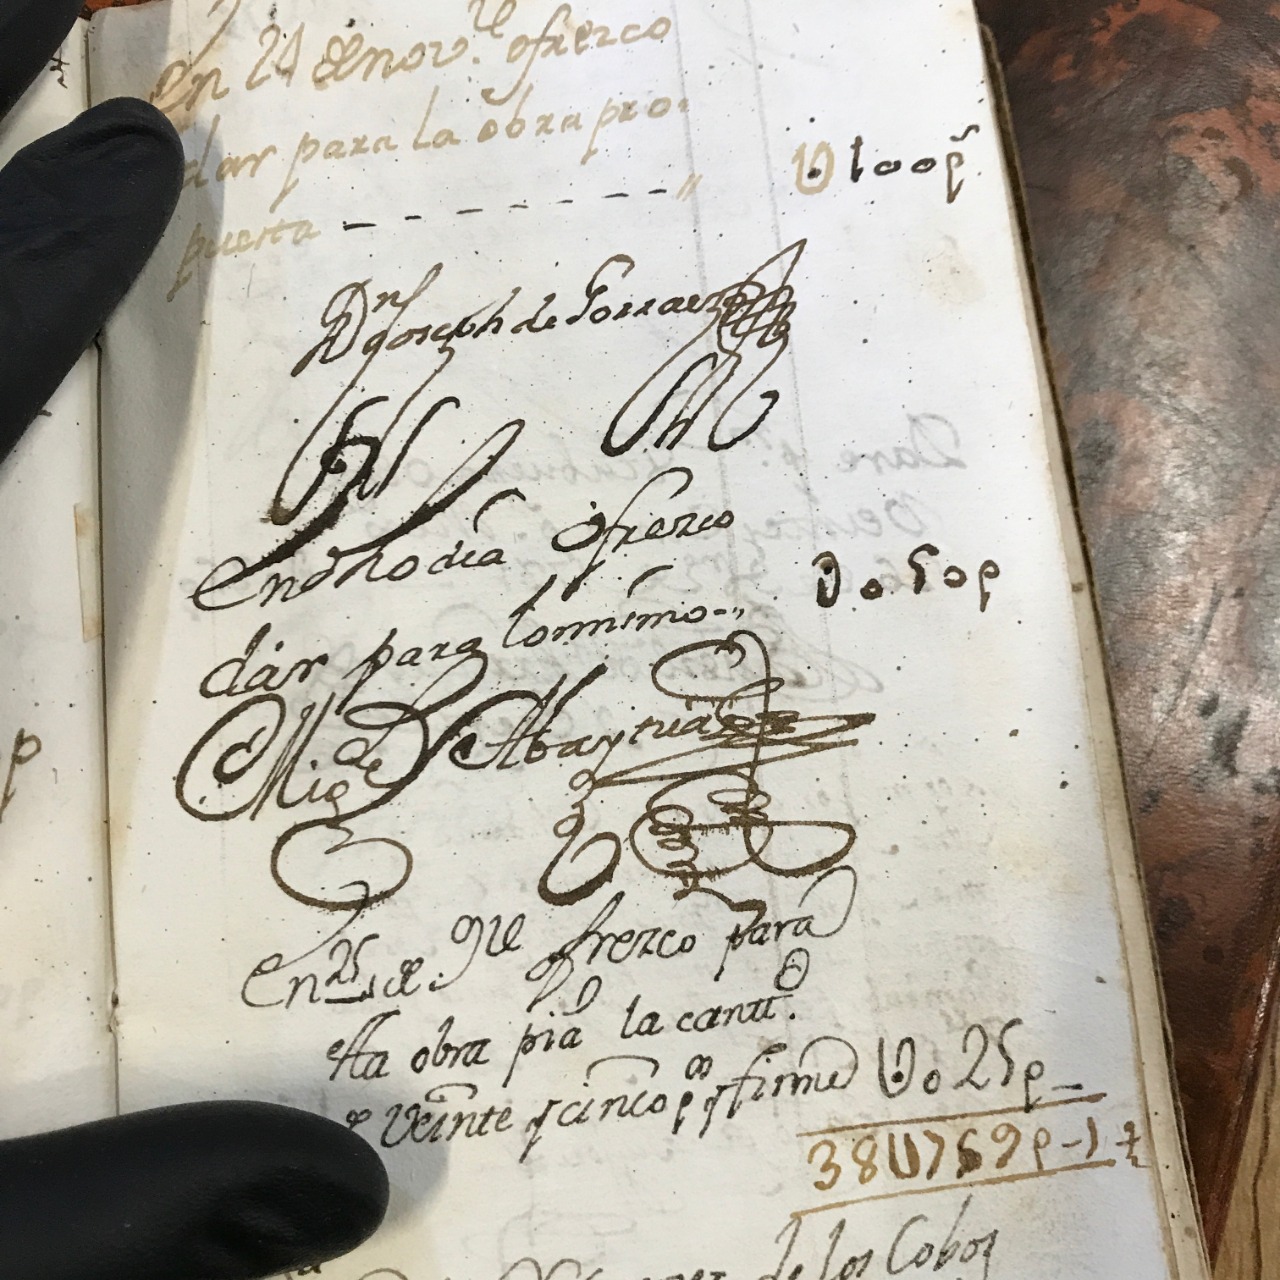 En 24 de nov.re ofrezco
dar para la obra pro-
puesta - - - - - - - - " U100p.s
Dn Joseph de Torraez
En dho dia ofrezco
dar para lo mismo-,, U050p
Mig.l de Abaytua
En 25 de. ofrezco para
sta obra pia la cantt.d
de veinte y cinco p.os y firme U025p
38U769p-1
de los Cobos